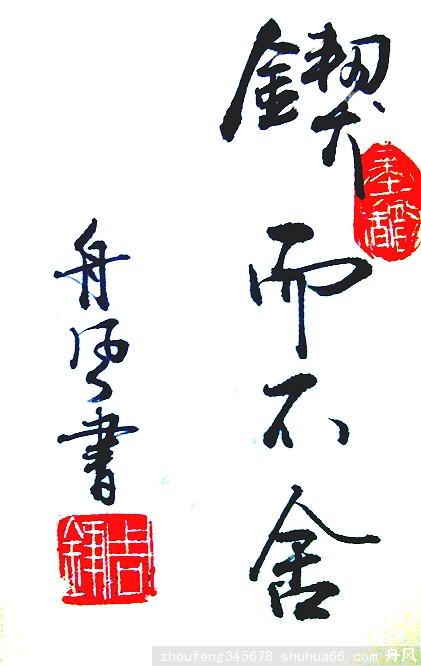 锲而不舍
舟风书
zhoufeng345678 shuhua66.com 舟风